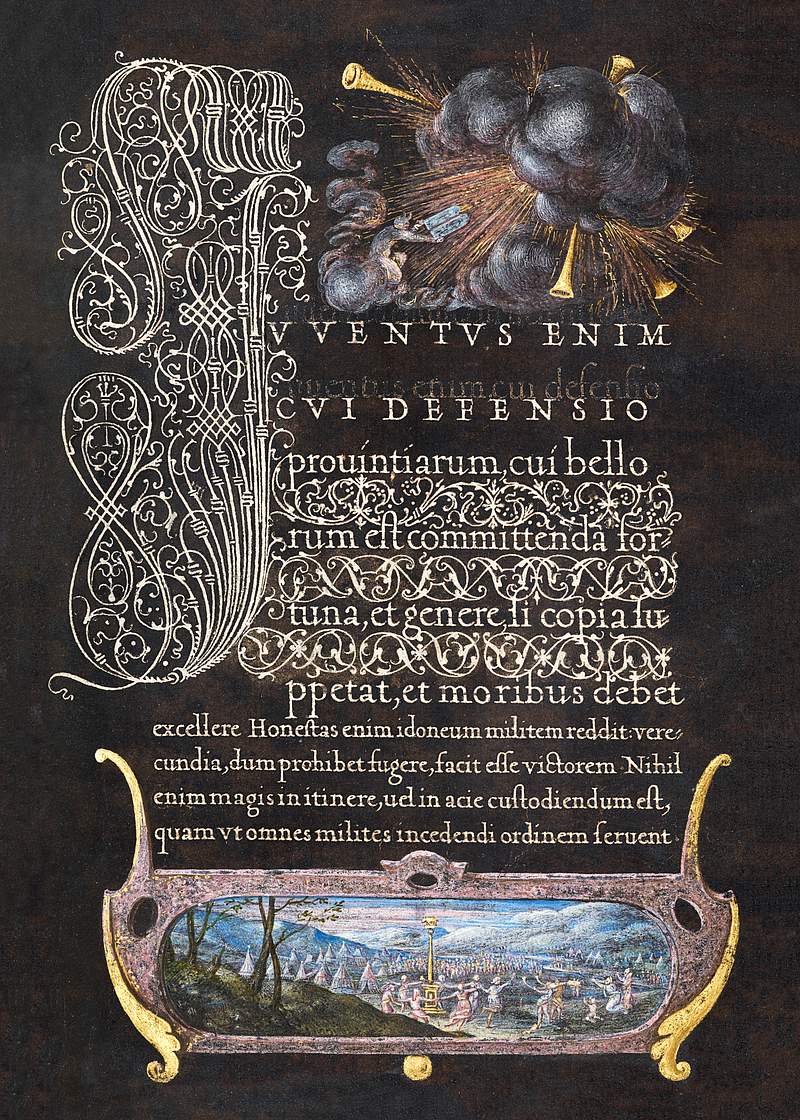 IVVENTVS ENIM
iuuentus enim, cui defensio
CVI DEFENSIO
prouintiarum, cui bello
rum eſt committenda for⸗
tuna, et genere, ſi copia ſu⸗
ppetat, et moribus debet
excellere Honeſtas enim idoneum militem reddit: vere⸗
cundia, dum prohibet fugere, facit eſſe victorem Nihil
enim magis in itinere, uel in acie cuſtodiendum eſt,
quam vt omnes milites incedendi ordinem ſeruent